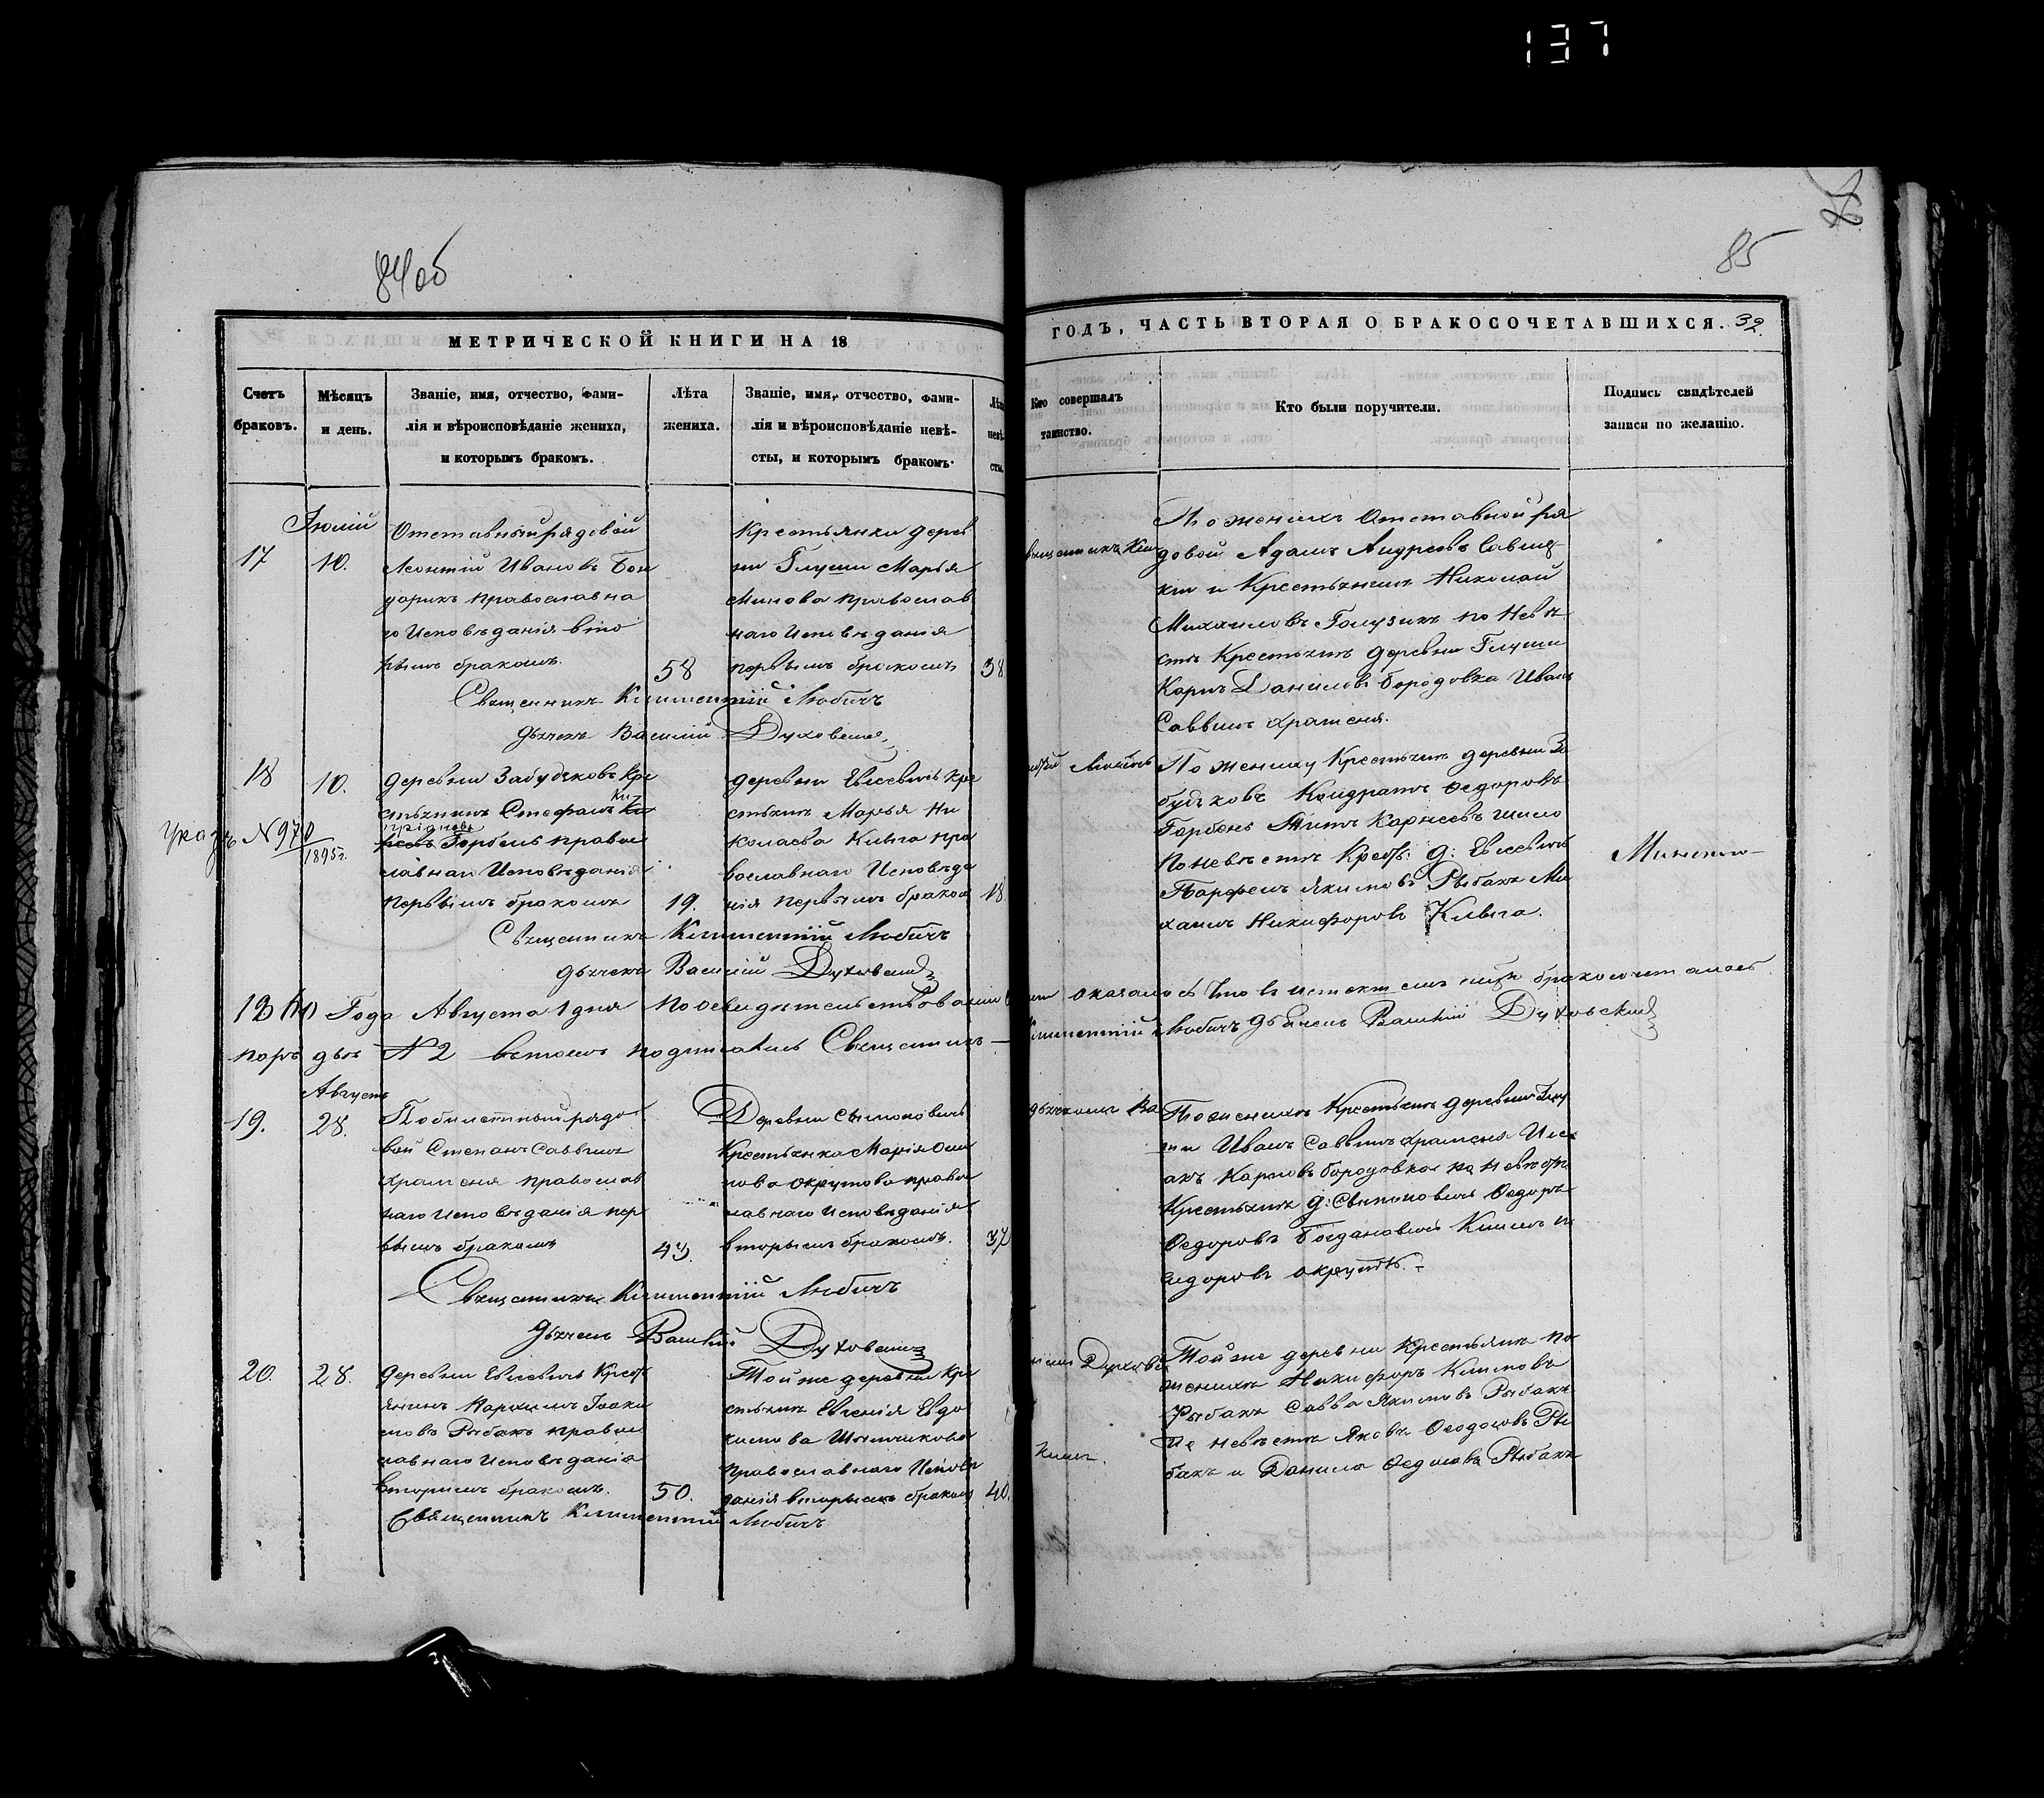 137
84об
85
МЕТРИЧЕСКОЙ КНИГИ НА 18
ГОДЪ, ЧАСТЬ ВТОРАЯ О БРАКОСОЧЕТАВШИХСЯ. 32.
Счетъ браковъ.
Мѣсяцъ и день.
Званіе, имя, отчество, фами-
лія и вѣроисповѣданіе жениха,
и которымъ бракомъ.
Лѣта
жениха.
Званіе, имя, отчество, фами-
лія и вѣроисповѣданіе невѣ-
сты, и которымъ бракомъ.
Лѣта
невѣ-
сты
Кто совершалъ
таинство.
Кто были поручители.
Подпись свидѣтелей
записи по желанію.
Іюлій
17
10.
Отставный рядовой
Леонтій Ивановъ Бон
дарикъ православна
го Исповѣданія вто
рымъ бракомъ.
58
Крестьянка дерев
ни Глуши Марья
Минова православ
наго Исповѣданія
первымъ бракомъ
38
По женихѣ Отставной ря
довой Адамъ Андреевъ
и Крестьянинъ Николай
Михаиловъ Голузинъ по Невѣ
стѣ Крестьяне деревни Глуши
Карпъ Даниловъ Бородовка Иванъ
Саввинъ Храменя.
Священникъ Климентій Любичъ
дьячекъ Василій Духовскій
18
10.
Указъ N 970
1895г.
деревни Забудьковъ Кре
стьянинъ Стефанъ
Ки
пріановъ
Горбель правос
лавнаго Исповѣданія
первымъ бракомъ
19.
деревни Евсевичь кре
стьянка Марья Ни
колаева Кивга пра
вославнаго Исповѣда
нія первымъ браком
18
По жениху Крестьяне деревни За
будьковъ Кондратъ Федоровъ
Горбель Титъ Корнеевъ Шило
По невѣстѣ Крест: д: Евсевичь
Парфенъ Якимовъ Рыбакъ Ми
хаилъ Никифоровъ Кивга.
Священникъ Климентій Любичъ
дьячекъ Василій Духовскій
Года Августа 1 дня По освидѣтельствованіи
оказалось что въ истекшемъ бракосочетались
N 2 въ томъ подписались Священникъ
Климентій Любичъ дьячекъ Василій Духовскій
Августъ
19.
28.
Побилетный рядо
вой Степанъ Саввинъ
Храменя православ
наго Исповѣданія пер
вымъ бракомъ
43.
Деревни Свыноповичь
Крестьянка Марія Оси
пова Окрутова правос
лавнаго Исповѣданія
вторымъ бракомъ.
37
По женихѣ Крестьяне деревни Глу
ши Иванъ Саввинъ Храменя Иса
акъ Карповъ Бородовка по невѣстѣ
Крестьяне д: Свыноповичь Федоръ
Федоровъ Богдановичъ Климъ
Сидоровъ Окрутъ.
Священникъ Климентій Любичъ
дьячекъ Василій Духовскій
20.
28.
Деревни Евсевичь Крест
янинъ Варфоломей Іоаки
мовъ Рыбакъ правос
лавнаго Исповѣданія
вторымъ бракомъ.
50.
Той же деревни Кре
стьянка Евгенія Евдо
кимова
православнаго Исповѣ
данія вторымъ браком
40.
Той же деревни Крестьяне по
женихѣ Никифоръ Климовъ
Рыбакъ Савва Якимовъ Рыбакъ
По невѣстѣ Яковъ Феодосовъ Ры
бакъ и Данила Федосовъ Рыбакъ
Священникъ Климентій Любичъ